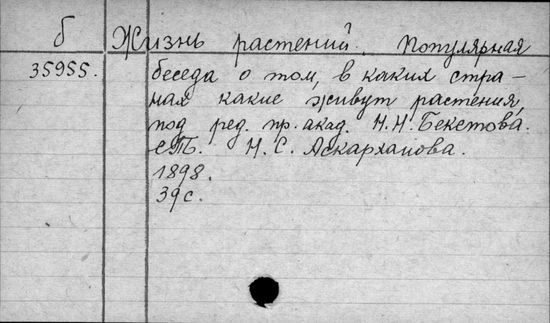 б Жизнь растений. Популярная
35955. беседа о том, в каких стра-
нах какие живут растения,
под ред. пр. акад. Н.Н. Бекетова.
СПБ. Н.С. Аскарханова.
1898.
39 с.